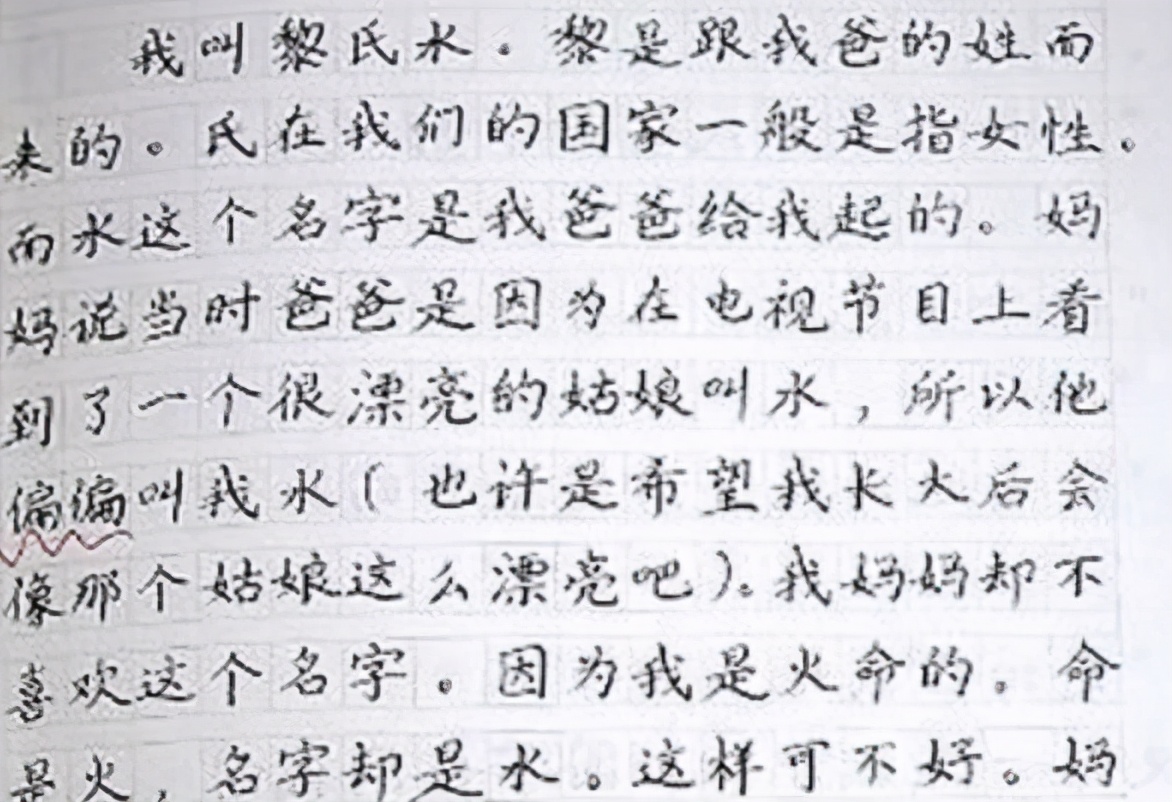 我叫黎氏水。黎是跟我爸的姓而
来的。氏在我们的国家一般是指女性。
而水这个名字是我爸爸给我起的。妈
妈说当时爸爸是因为在电视节目上看
到了一个很漂亮的姑娘叫水，所以他
偏偏叫我水（也许是希望我长大后会
像那个姑娘这么漂亮吧）。我妈妈却不
喜欢这个名字。因为我是火命的。命
是火，名字却是水。这样可不好。妈